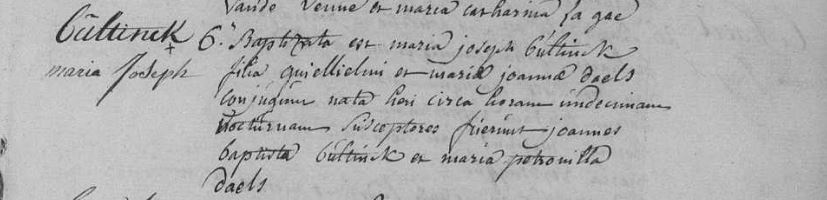 Vande Venne et maria catharina la gae
Bültinck
maria Joseph
6.a Baptizata est maria joseph bültinck
filia guiellielmi et mariæ joannæ daels
conjugum nata heri circa horam undecimam
nocturnam susceptores fuerunt joannes
baptista bültinck et maria petronilla
daels